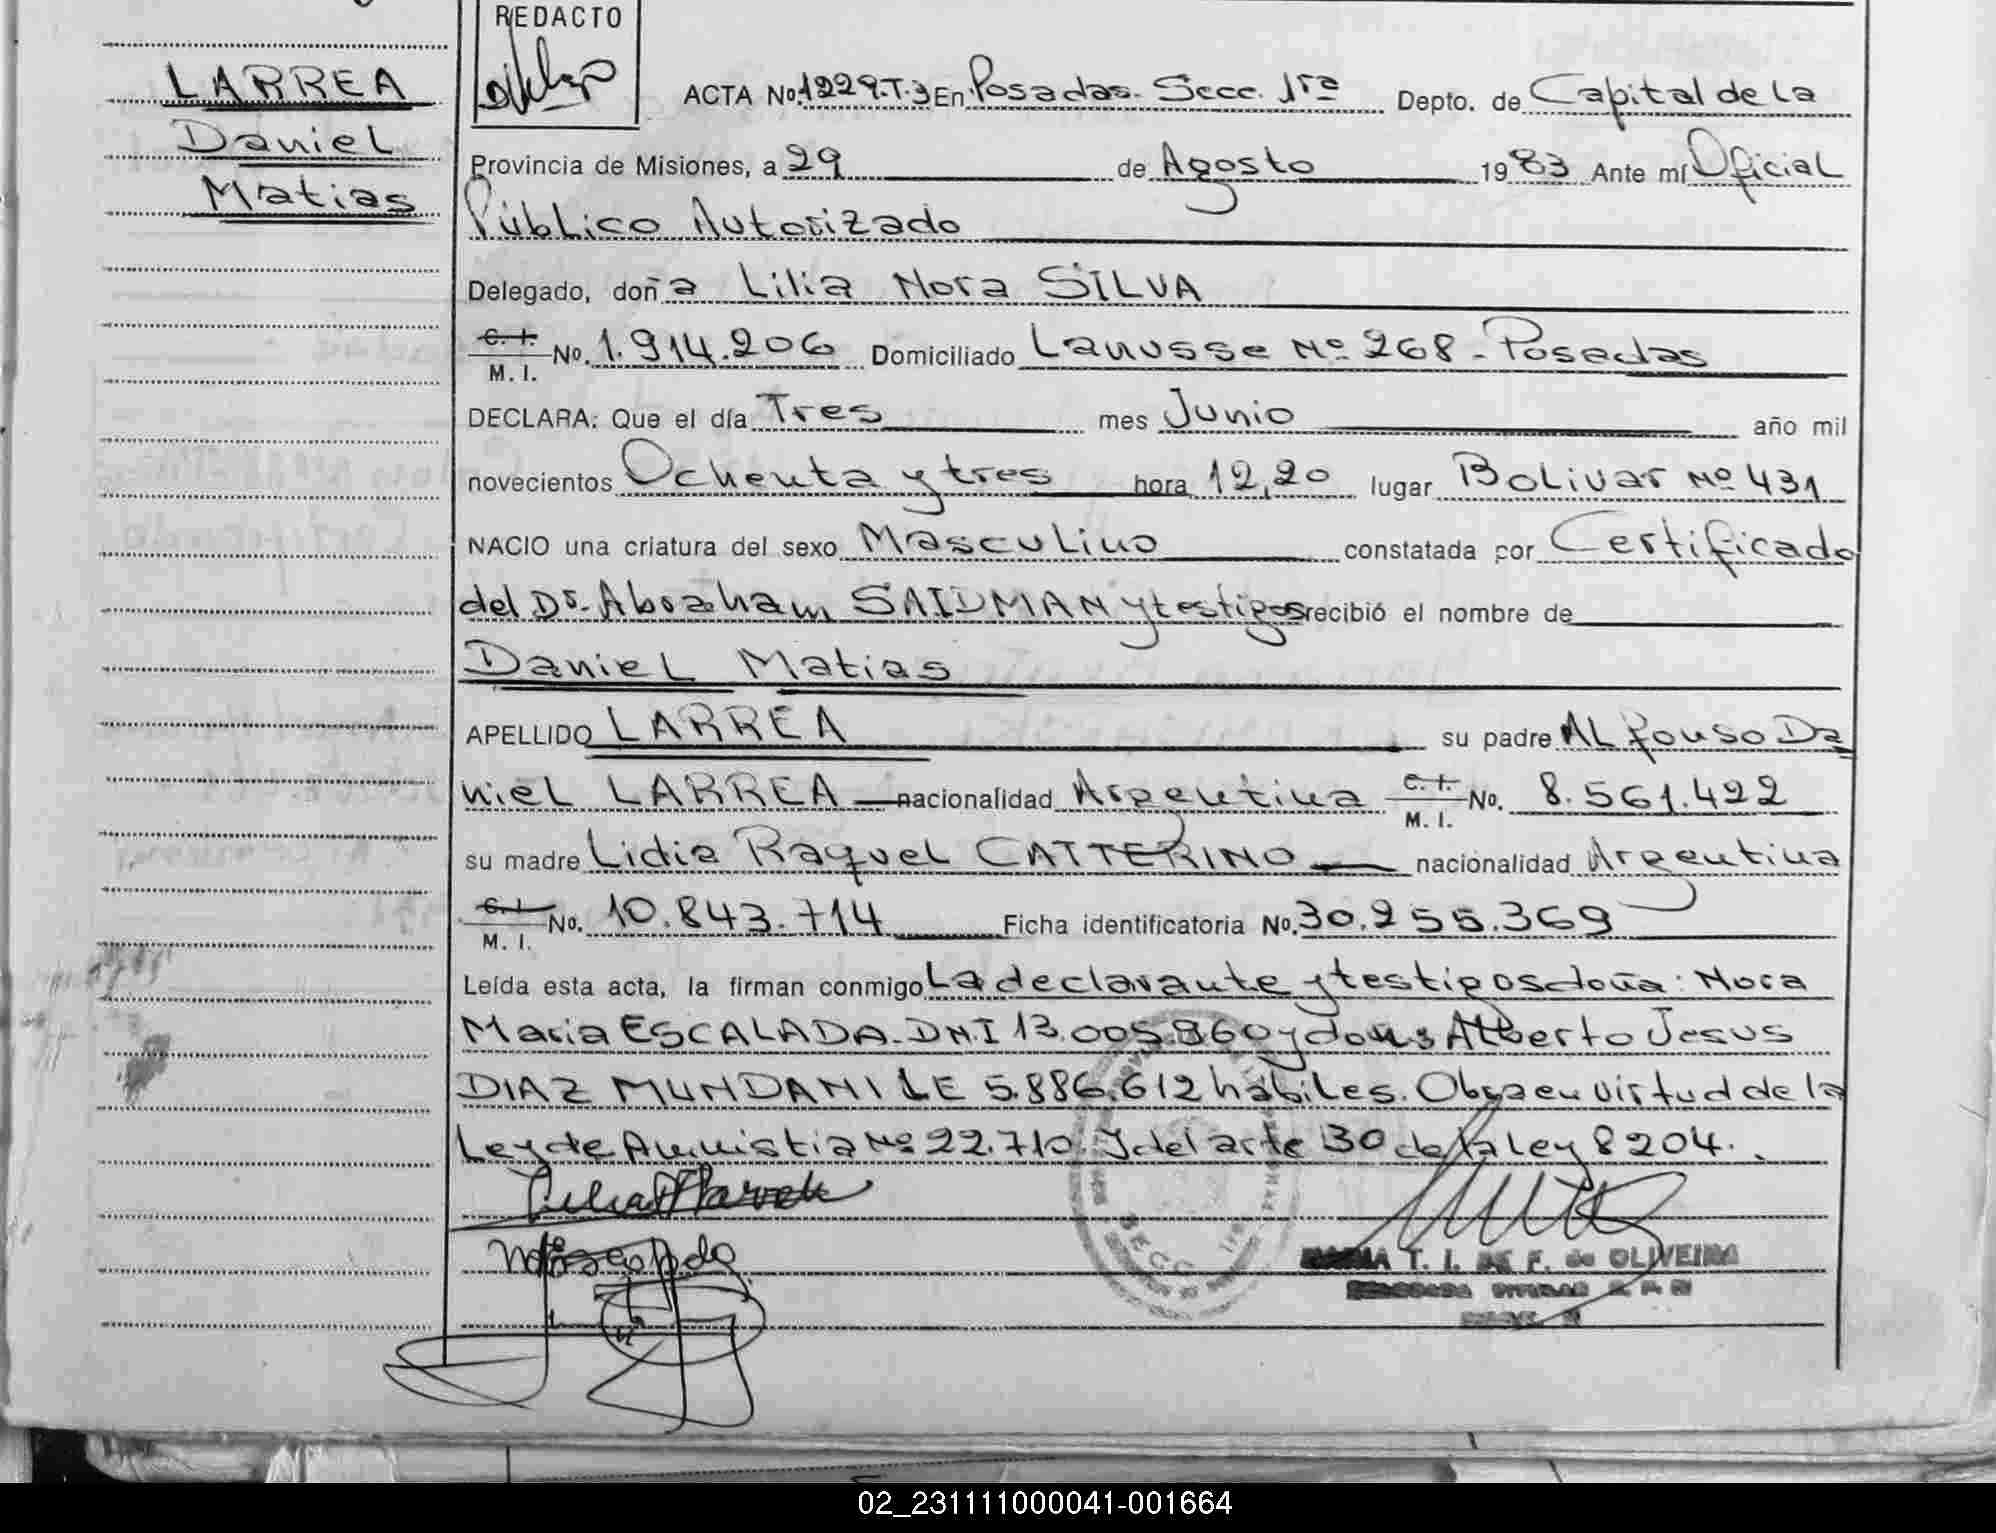 REDACTO
LARREA
Daniel
Matias
ACTA No. 1229.T.3 En Posadas. Secc. 1ra Depto. de Capital de La
Provincia de Misiones, a 29 de Agosto 1983 Ante mí Oficial
Público Autorizado
Delegado, doña Lilia Nora SILVA
C. I. M. I. No. 1.914.206 Domiciliado Lanusse Nº 268 - Posadas
DECLARA: Que el día Tres mes Junio año mil
novecientos Ochenta y tres hora 12,20 lugar Bolivar Nº 431
NACIO una criatura del sexo Masculino constatada por Certificado
del Dr. Abraham SAIDMAN y testigos recibió el nombre de
Daniel Matias
APELLIDO LARREA su padre ALfonso Da
niel LARREA nacionalidad Argentina C. I. M. I. No. 8.561.422
su madre Lidia Raquel CATTERINO nacionalidad Argentina
C. I. M. I. No. 10.843.714 Ficha identificatoria No. 30.255.369
Leída esta acta, la firman conmigo La declarante y testigos doña: Nora
Maria ESCALADA. DNI 13.005.860 y don Alberto Jesus
DIAZ MUNDANI LE 5.886.612 hábiles. Obra en virtud de la
Ley de Amnistia Nº 22.710. Y del arte 30 de la Ley 8204.
SECC. 1ra
MARIA T. I. DE F. de OLIVEIRA
02_231111000041-001664